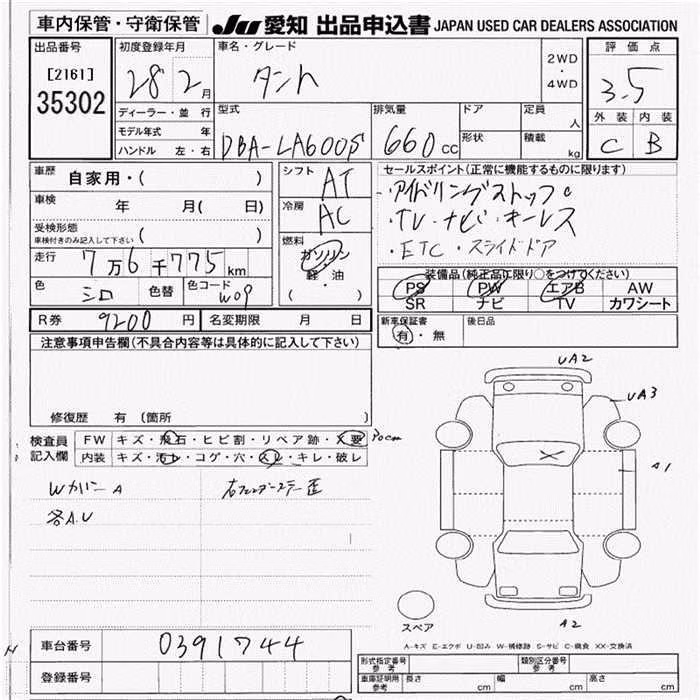 車内保管・守衛保管 JU 愛知 出品申込書 JAPAN USED CAR DEALERS ASSOCIATION
出品番号
[2161]
35302
初度登録年月
28 2月
ディーラー・並行
モデル年式 年
ハンドル 左・右
車名・グレード
タント
2WD
・
4WD
型式
DBA-LA600S
排気量
660cc
ドア
形状
定員
人
積載
kg
評価点
3.5
外装 内装
C B
車歴
自家用・( )
車検
年 月( 日)
受検形態
車検付きのみ記入して下さい ( )
走行
7万6千775km
色
シロ
色替
色コード
W09
シフト
AT
冷房
AC
燃料
ガソリン
軽・油
( ・ )
セールスポイント(正常に機能するものに限ります)
・アイドリングストップ
・TV・ナビ・キーレス
・ETC・スライドドア
装備品(純正品に限り○をつけてください)
PS PW エアB AW
SR ナビ TV カワシート
新車保証書
有・無
後日品
R券 9200円
名変期限 月 日
注意事項申告欄(不具合内容等は具体的に記入して下さい)
修復歴 有(箇所 )
検査員
記入欄
FW キズ・飛石・ヒビ割・リペア跡・X要 30cm
内装 キズ・汚レ・コゲ・穴・スレ・キレ・破レ
WカバーA
各A.U
右フェンダーステー歪
UA2
UA3
A1
A2
スペア
A-キズ E-エクボ U-凹み W-補修跡 S-サビ C-腐食 XX-交換済
車台番号 0391744
登録番号
形式指定番号
参考
類別区分番号
参考
車庫証明用
参考
長さ cm
幅 cm
高さ cm